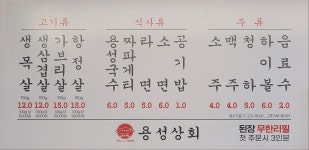 고기류
생목살 12.0
생삼겹살 12.0
가브리살 15.0
항정살 15.0
식사류
용성파국수 6.0
짜파게티 5.0
라면 5.0
소면 6.0
공기밥 1.0
주류
소주 4.0
맥주 4.0
청하 5.0
하이볼 6.0
음료수 2.0
용성상회
된장 무한리필
첫 주문시 3인분